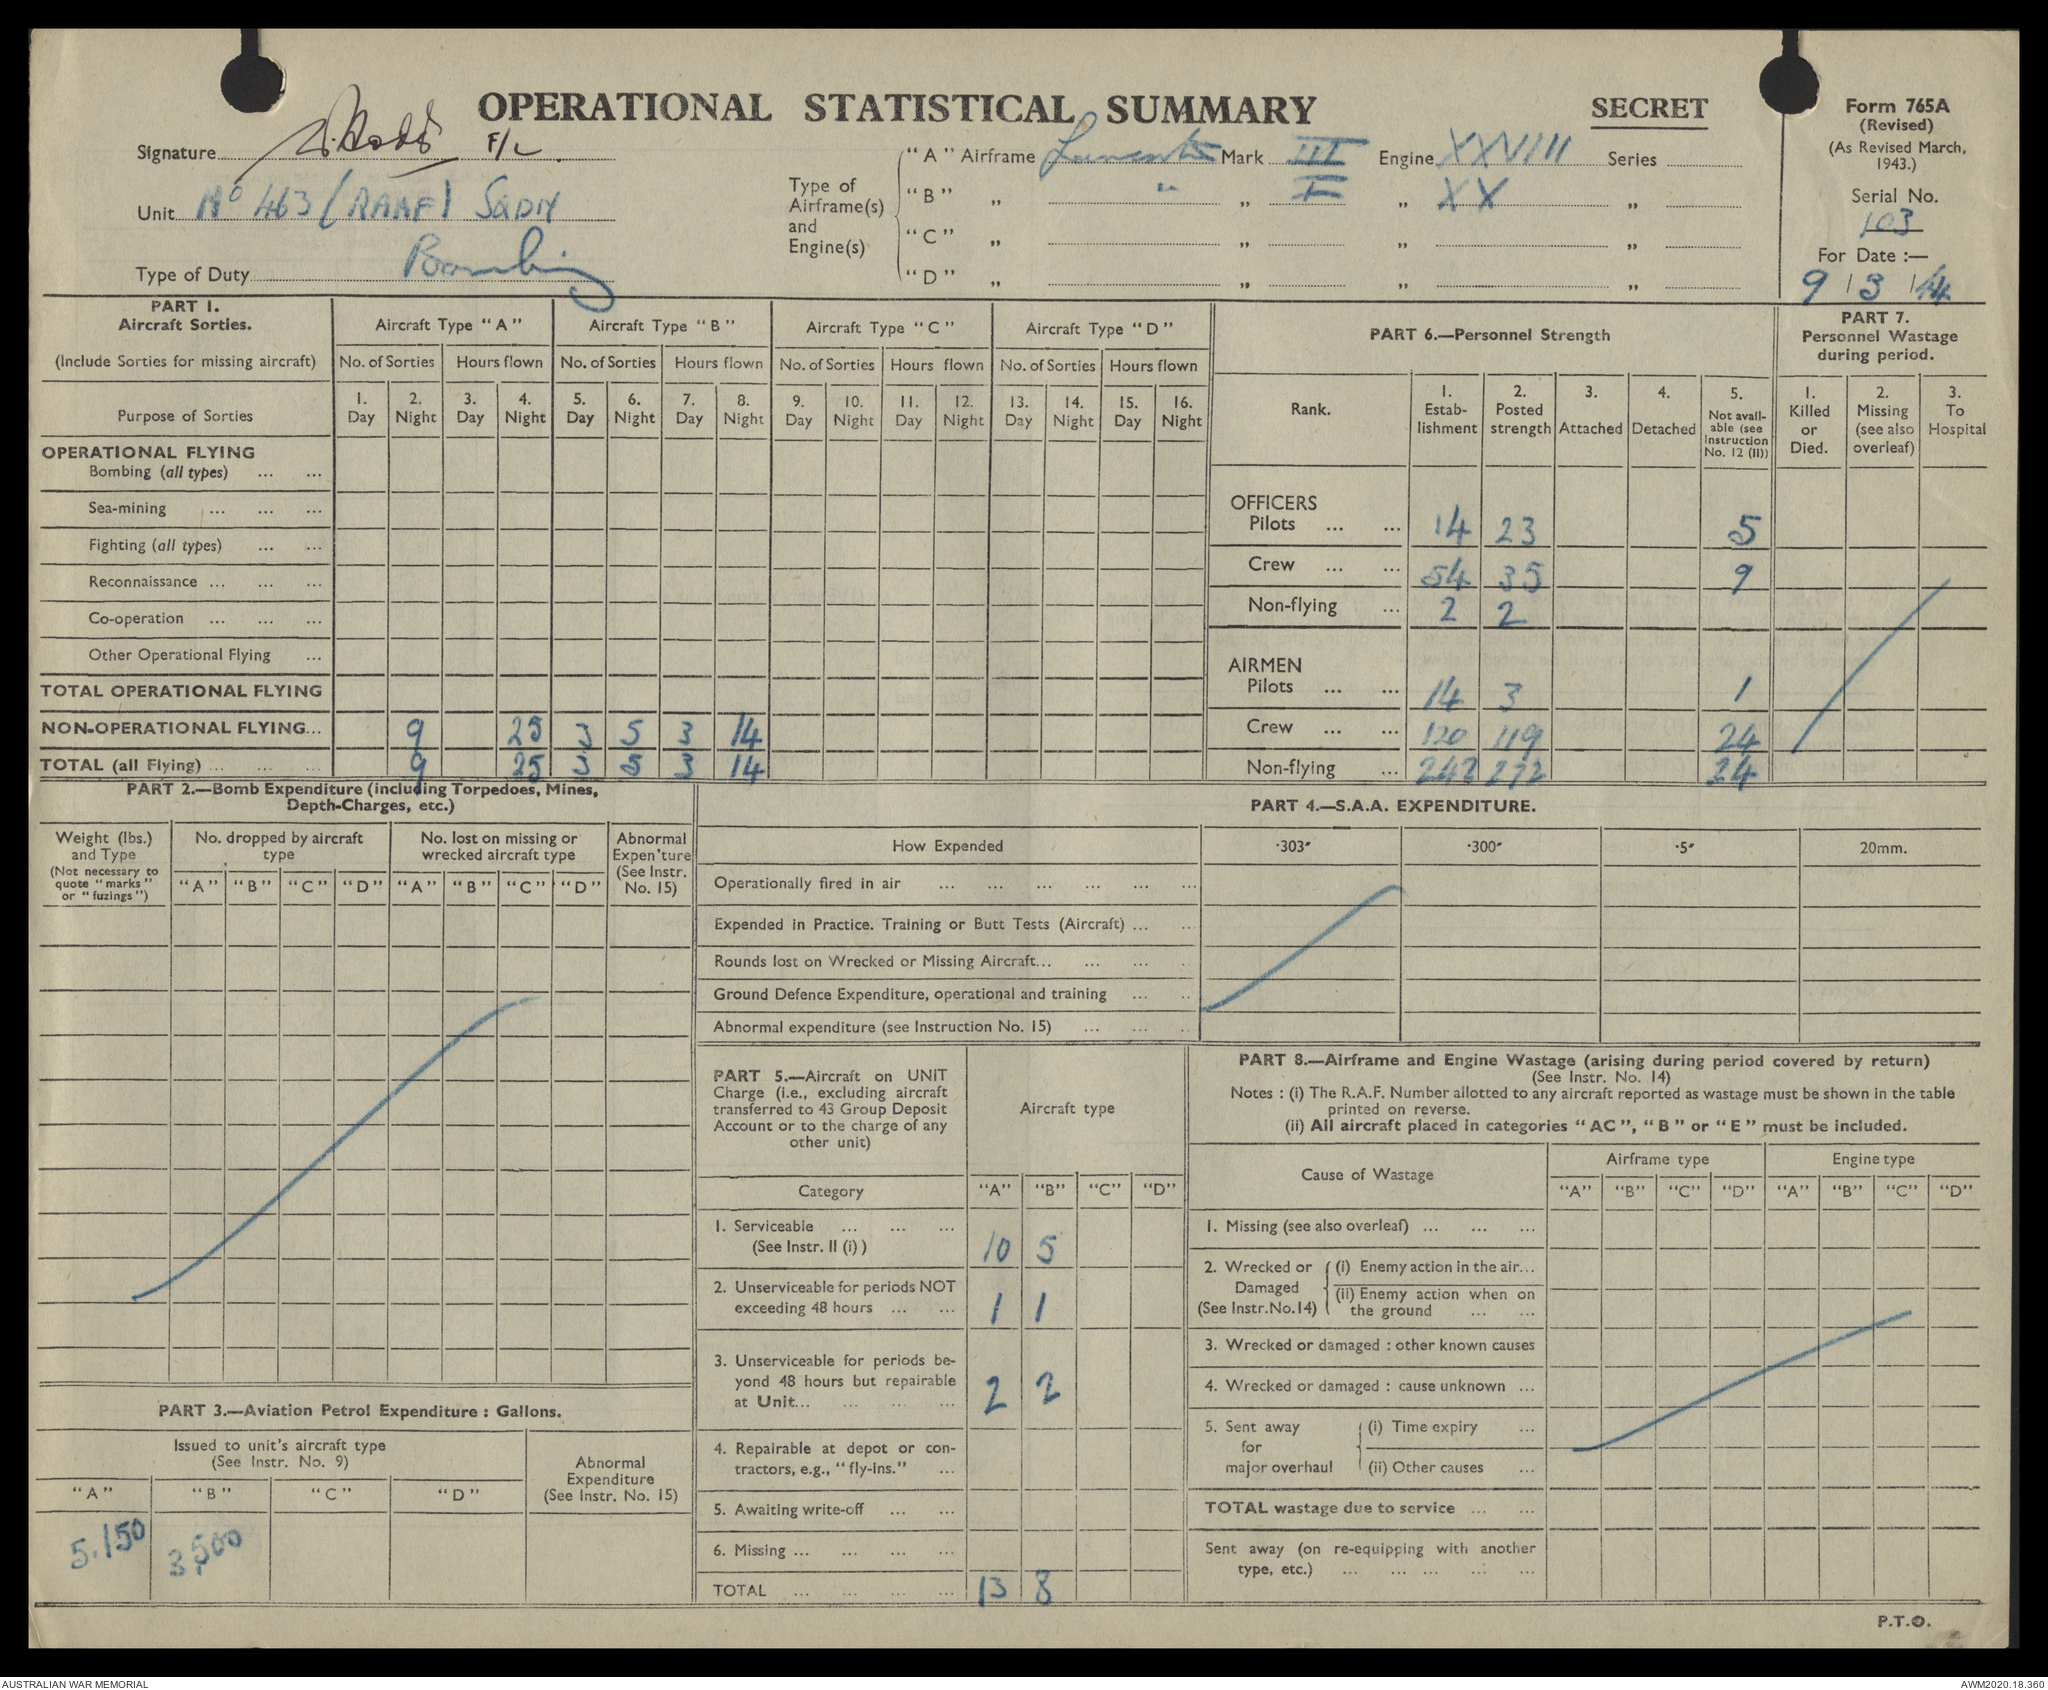 OPERATIONAL STATISTICAL SUMMARY
SECRET
Form 765A
(Revised)
(As Revised March,
1943.)
Serial No.
103
For Date :—
9 / 3 / 44
Signature F/L
Unit No 463 (RAAF) SQDN
Type of Duty Bombing
Type of
Airframe(s)
and
Engine(s)
"A" Airframe Lancaster Mark III Engine XXVIII Series
"B" „ " „ I „ XX „
"C" „ „ „ „
"D" „ „ „ „
PART 1.
Aircraft Sorties.
(Include Sorties for missing aircraft)
Purpose of Sorties
Aircraft Type "A" Aircraft Type "B" Aircraft Type "C" Aircraft Type "D"
No. of Sorties Hours flown No. of Sorties Hours flown No. of Sorties Hours flown No. of Sorties Hours flown
1. 2. 3. 4. 5. 6. 7. 8. 9. 10. 11. 12. 13. 14. 15. 16.
Day Night Day Night Day Night Day Night Day Night Day Night Day Night Day Night
OPERATIONAL FLYING
Bombing (all types) ... ...
Sea-mining ... ... ...
Fighting (all types) ... ...
Reconnaissance ... ... ...
Co-operation ... ... ...
Other Operational Flying ...
TOTAL OPERATIONAL FLYING
NON-OPERATIONAL FLYING... 9 25 3 5 3 14
TOTAL (all Flying) ... ... ... 9 25 3 5 3 14
PART 6.—Personnel Strength
Rank.
1.
Estab-
lishment
2.
Posted
strength
3.
Attached
4.
Detached
5.
Not avail-
able (see
Instruction
No. 12 (II))
OFFICERS
Pilots ... ... 14 23 5
Crew ... ... 54 35 9
Non-flying ... 2 2
AIRMEN
Pilots ... ... 14 3 1
Crew ... ... 120 119 24
Non-flying ... 272 24
PART 7.
Personnel Wastage
during period.
1.
Killed
or
Died.
2.
Missing
(see also
overleaf)
3.
To
Hospital
PART 2.—Bomb Expenditure (including Torpedoes, Mines,
Depth-Charges, etc.)
Weight (lbs.)
and Type
(Not necessary to
quote "marks"
or "fuzings")
No. dropped by aircraft
type
No. lost on missing or
wrecked aircraft type
Abnormal
Expen'ture
(See Instr.
No. 15)
"A" "B" "C" "D" "A" "B" "C" "D"
PART 3.—Aviation Petrol Expenditure : Gallons.
Issued to unit's aircraft type
(See Instr. No. 9)
Abnormal
Expenditure
(See Instr. No. 15)
"A" "B" "C" "D"
5,150 3,500
PART 4.—S.A.A. EXPENDITURE.
How Expended ·303" ·300" ·5" 20mm.
Operationally fired in air ... ... ... ... ... ...
Expended in Practice. Training or Butt Tests (Aircraft) ... ...
Rounds lost on Wrecked or Missing Aircraft... ... ... ..
Ground Defence Expenditure, operational and training ... ..
Abnormal expenditure (see Instruction No. 15) ... ... ..
PART 5.—Aircraft on UNIT
Charge (i.e., excluding aircraft
transferred to 43 Group Deposit
Account or to the charge of any
other unit)
Aircraft type
Category "A" "B" "C" "D"
1. Serviceable ... ... ...
(See Instr. II (i) ) 10 5
2. Unserviceable for periods NOT
exceeding 48 hours ... ... 1 1
3. Unserviceable for periods be-
yond 48 hours but repairable
at Unit... ... ... ... 2 2
4. Repairable at depot or con-
tractors, e.g., "fly-ins." ...
5. Awaiting write-off ... ...
6. Missing ... ... ... ...
TOTAL ... ... ... ... 13 8
PART 8.—Airframe and Engine Wastage (arising during period covered by return)
(See Instr. No. 14)
Notes : (i) The R.A.F. Number allotted to any aircraft reported as wastage must be shown in the table
printed on reverse.
(ii) All aircraft placed in categories "AC", "B" or "E" must be included.
Cause of Wastage
Airframe type Engine type
"A" "B" "C" "D" "A" "B" "C" "D"
1. Missing (see also overleaf) ... ... ...
2. Wrecked or
Damaged
(See Instr.No.14)
(i) Enemy action in the air...
(ii) Enemy action when on
the ground ... ...
3. Wrecked or damaged : other known causes
4. Wrecked or damaged : cause unknown ...
5. Sent away
for
major overhaul
(i) Time expiry ...
(ii) Other causes ...
TOTAL wastage due to service ... ...
Sent away (on re-equipping with another
type, etc.) ... ... ... ... ...
P.T.O.
AUSTRALIAN WAR MEMORIAL
AWM2020.18.360